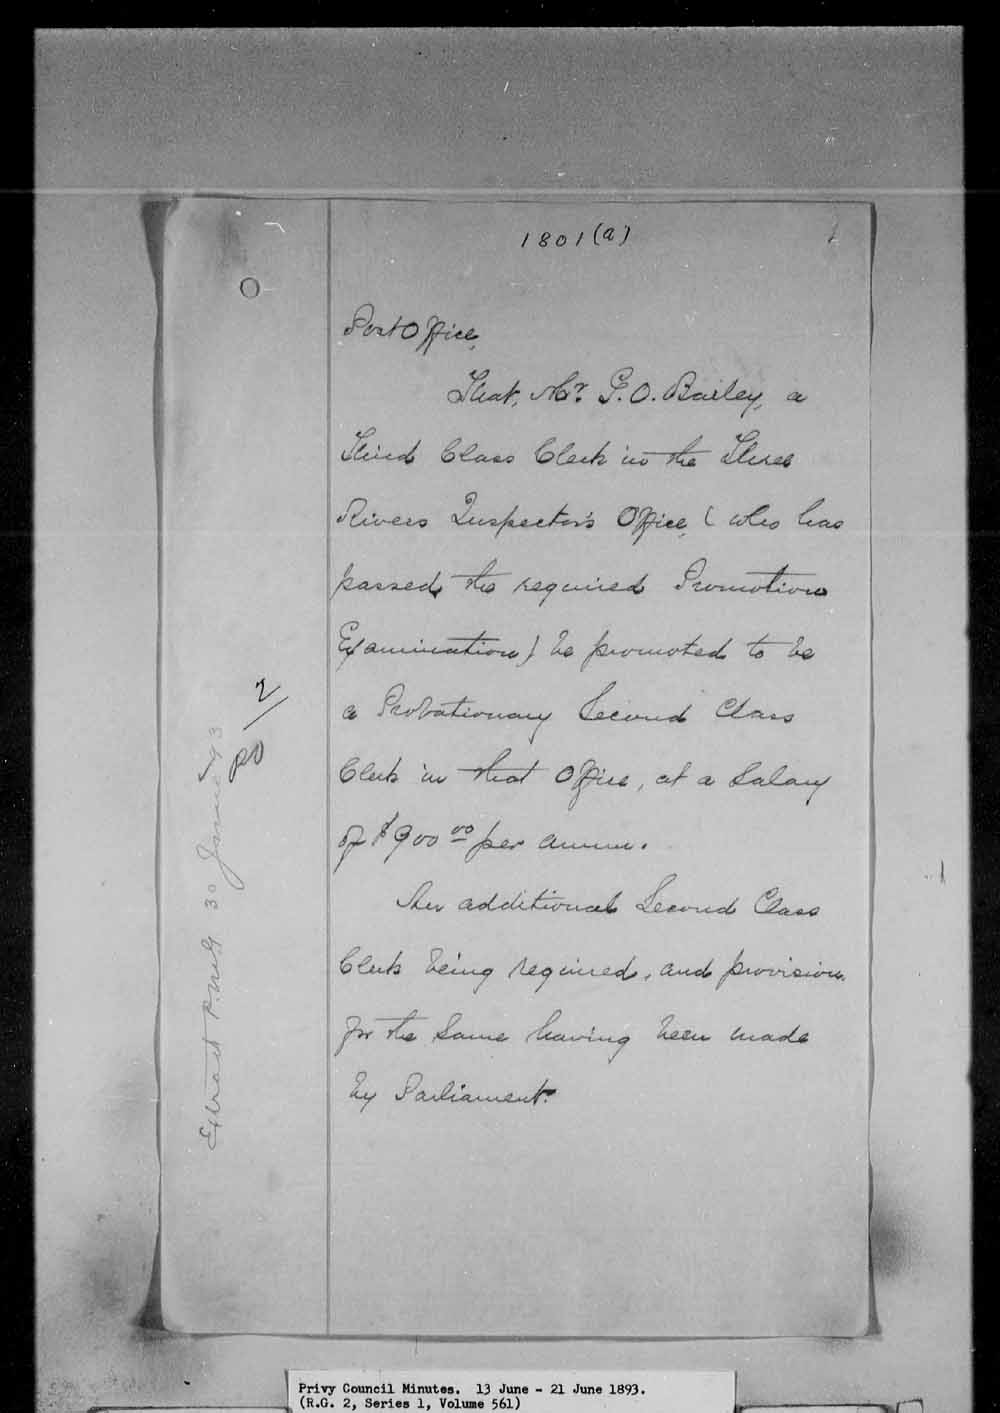 1801(a)
Post Office,
That, Mr. G. O. Bailey, a
Third Class Clerk in the Three
Rivers Inspector's Office, (who has
passed the required Promotion
Examination) be promoted to be
a Probationary Second Class
Clerk in that Office, at a Salary
of $900 00 per annum.
An additional Second Class
Clerk being required, and provision
for the same having been made
by Parliament.
PO 2/
Extract P.M.G 30 June 93
Privy Council Minutes. 13 June - 21 June 1893.
(R.G. 2, Series 1, Volume 561)